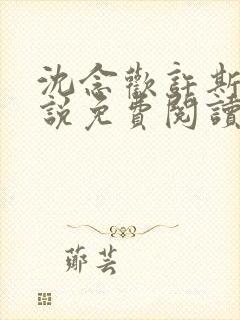 沈念歡許斯
說免費閱讀
鄭芸